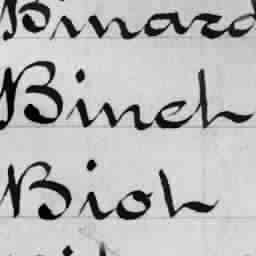 Binard
Binch
Bioh